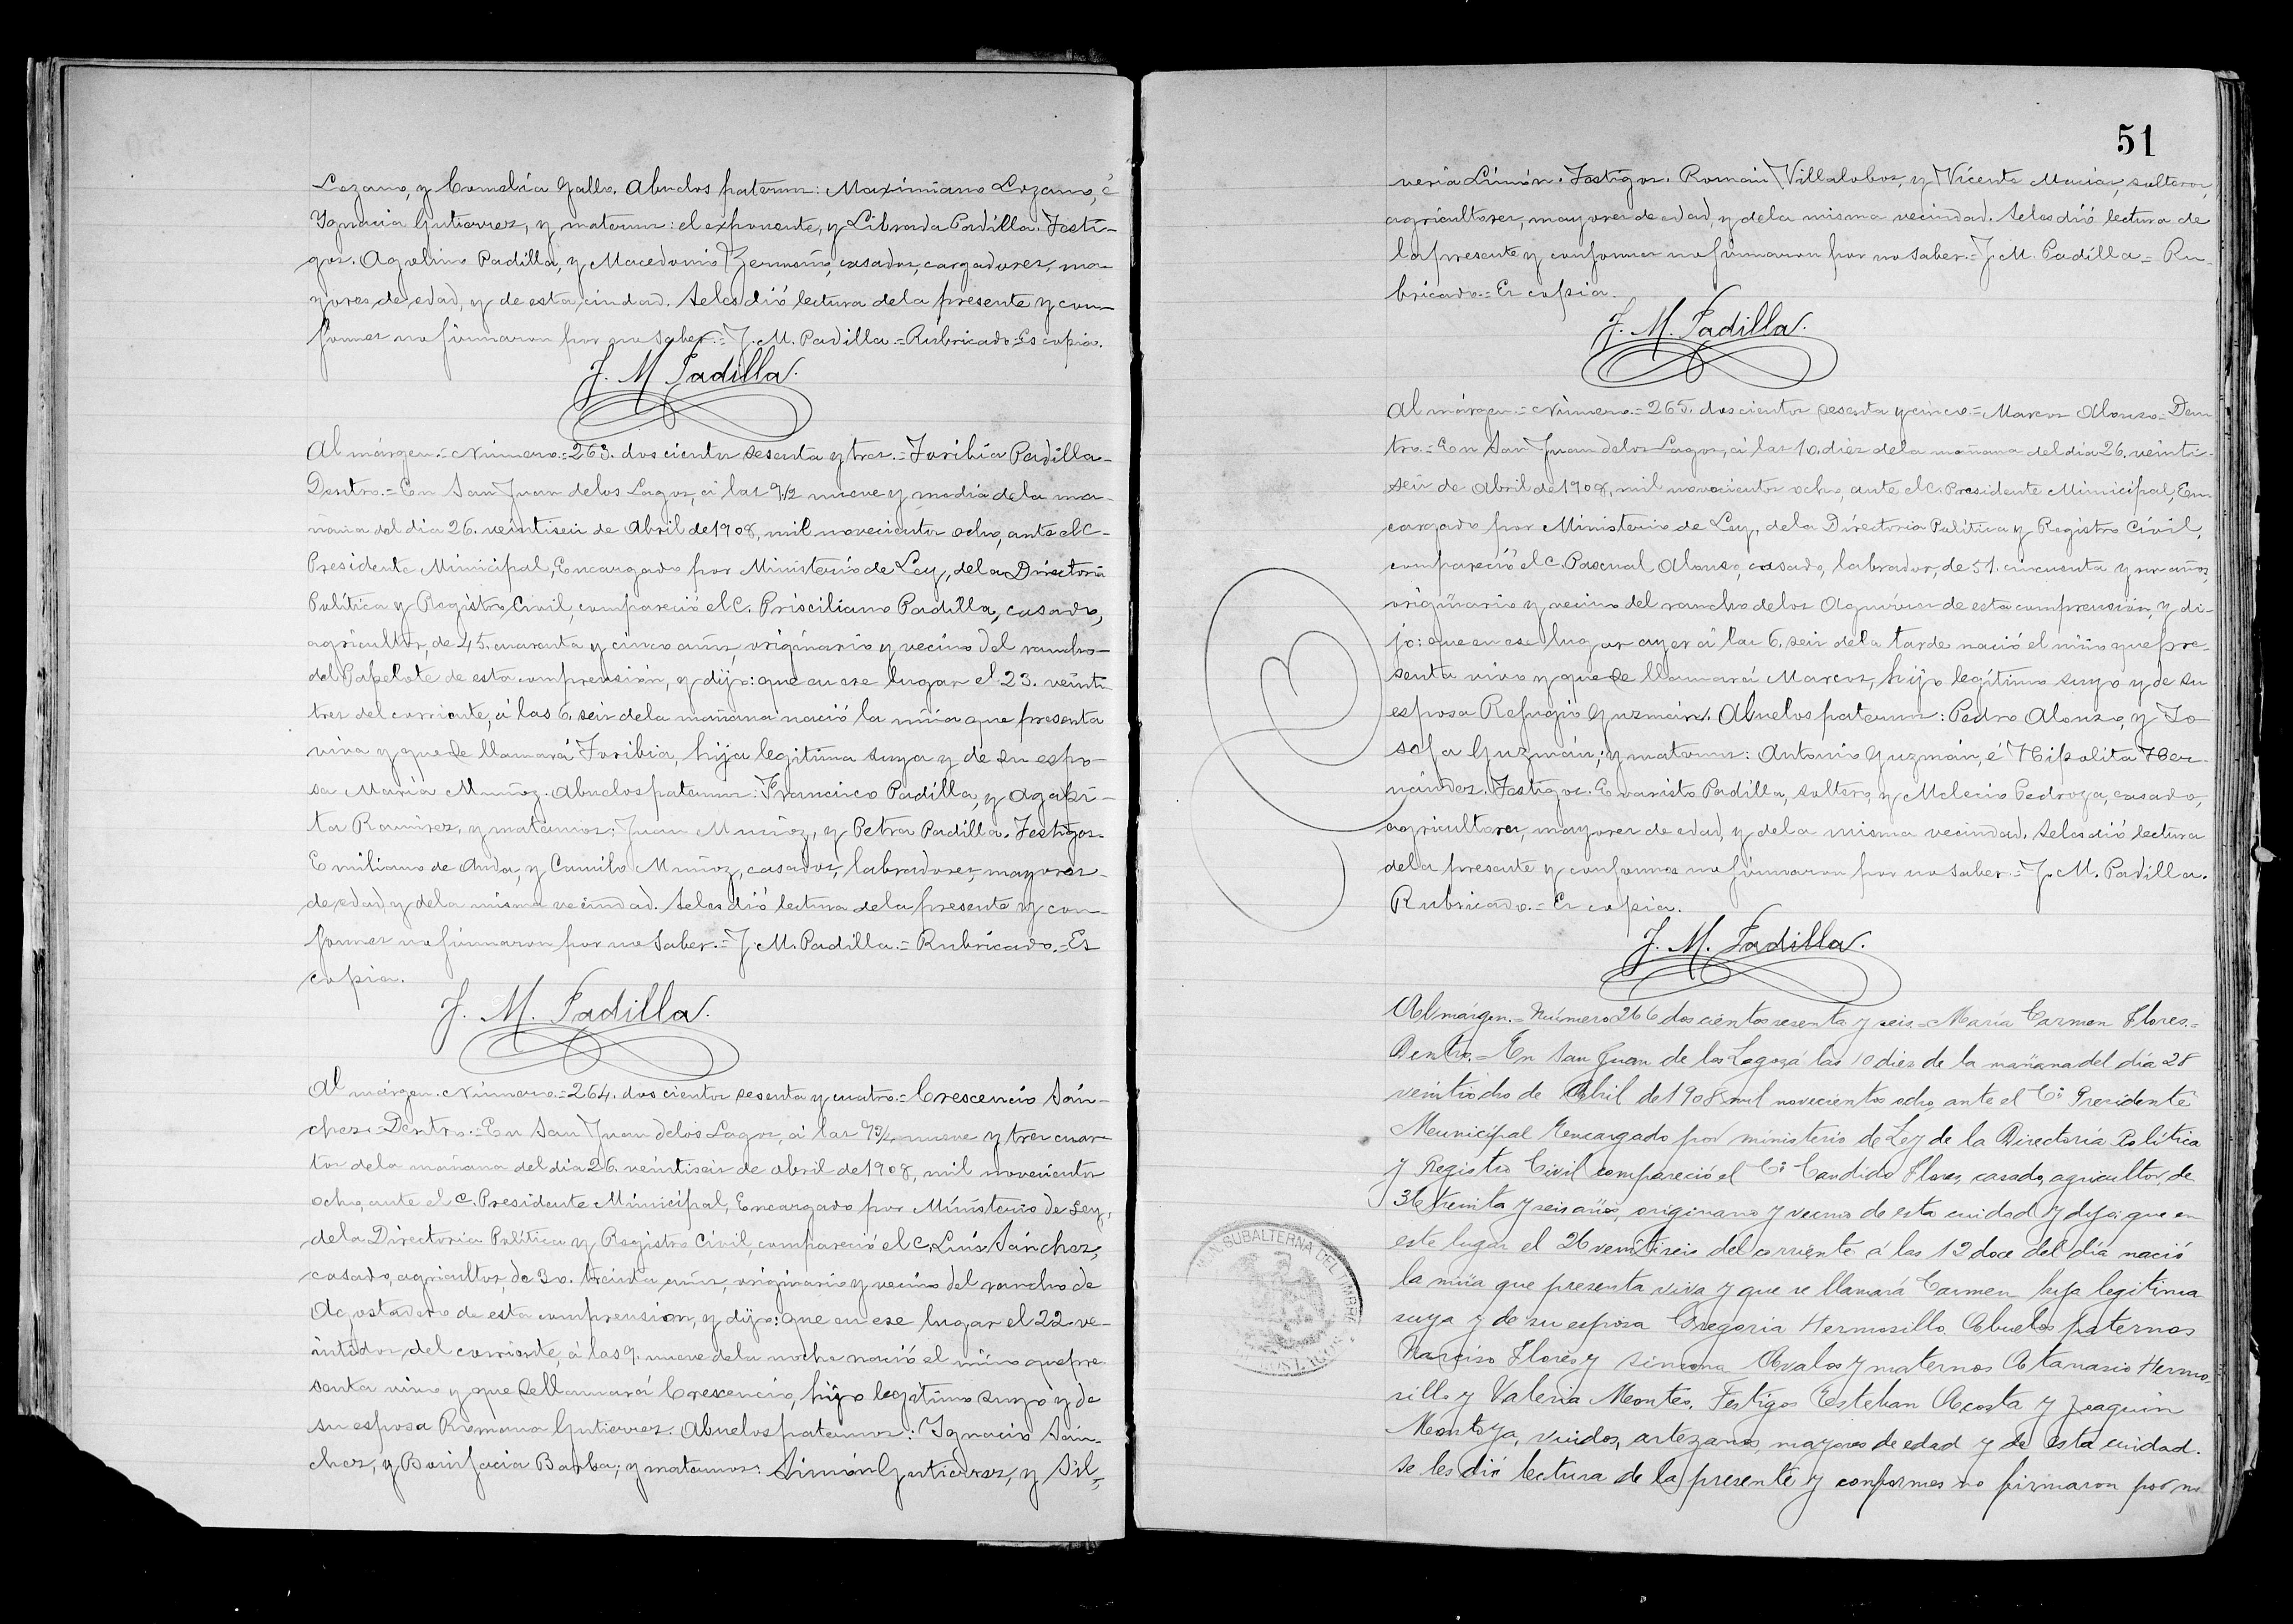 Lozano, y Cornelia Gallo. Abuelos paternos: Maximiano Lozano, é
Ygnacia Gutierrez, y maternos: el exponente, y Librada Padilla. Testi-
gos. Agelino Padilla, y Macedonio Zermeño, casados, cargadores, ma-
yores de edad, y de esta ciudad. Seles dió lectura dela presente y con-
formes no firmaron por no saber.= J. M. Padilla.= Rubricado. Es copia.
J. M. Padilla.
Al márgen.= Número.= 263. doscientos sesenta y tres.= Toribia Padilla-
Dentro.= En San Juan delos Lagos, á las 9.1/2 nueve y media dela ma-
ñana del dia 26. veintiseis de Abril de 1908, mil novecientos ocho, ante el C-
Presidente Municipal, Encargado por Ministerio de Ley, dela Directoria
Política y Registro Civil, compareció el C. Prisciliano Padilla, casado,
agricultor, de 45. cuarenta y cinco años, originario y vecino del rancho-
del Papelote de esta comprensión, y dijo: que en ese lugar el 23. veinti-
tres del corriente, á las 6. seis dela mañana nació la niña que presenta
viva y que se llamará Toribia, hija legitima suya y de su espo-
sa María Muñoz. Abuelos paternos: Francisco Padilla, y Agapi-
ta Ramirez, y maternos: Juan Muñoz, y Petra Padilla. Testigos-
Emiliano de Anda, y Camilo Muñoz, casados, labradores, mayores-
de edad, y dela misma vecindad. Seles dió lectura dela presente y con-
formes no firmaron por no saber.= J. M. Padilla.= Rubricado.= Es
copia.
J. M. Padilla.
Al márgen. Número.= 264. doscientos sesenta y cuatro.= Crescencio Sán-
chez.= Dentro.= En San Juan delos Lagos, á las 9 3/4 nueve y tres cuar-
tos dela mañana del dia 26. veintiseis de abril de 1908, mil novecientos
ocho, ante el C. Presidente Municipal, Encargado por Ministerio de Ley,
dela Directoria Política y Registro Civil, compareció el C. Luis Sánchez,
casado, agricultor, de 30. treinta años, originario y vecino del rancho de
Agostadero de esta comprension, y dijo: que en ese lugar el 22. ve-
intidos del corriente, á las 9. nueve dela noche nació el niño que pre-
senta vivo y que sellamará Crescencio, hijo legítimo suyo y de
su esposa Romana Gutierrez. Abuelos paternos: Ygnacio Sán-
chez, y Bonifacia Barba; y maternos: Simón Gutierrez, y Sil-
51
veria Limón. Testigos. Román Villalobos, y Vicente Macias, solteros,
agricultores, mayores de edad, y dela misma vecindad. Seles dió lectura de
la presente y conformes no firmaron por no saber.= J. M. Padilla= Ru-
bricado.= Es copia.
J. M. Padilla.
Al márgen.= Número.= 265. doscientos sesenta y cinco.= Marcos Alonzo= Den-
tro.= En San Juan delos Lagos, á las 10. diez dela mañana del dia 26. veinti-
seis de Abril de 1908, mil novecientos ocho, ante el C. Presidente Municipal, En-
cargado por Ministerio de Ley, dela Directoria Política y Registro Civil,
compareció el C. Pascual Alonzo, casado, labrador, de 51. cincuenta y un años,
originario y vecino del rancho delos Aguirres de esta comprensión, y di-
jo: que en ese lugar ayer á las 6. seis dela tarde nació el niño que pre-
senta vivo y que se llamará Marcos, hijo legítimo suyo y de su
esposa Refugio Guzmán. Abuelos paternos: Pedro Alonzo, y Jo-
sefa Guzmán; y maternos: Antonio Guzmán, é Hipolita Her-
nández. Testigos. Evaristo Padilla, soltero, y Melecio Pedroza, casado,
agricultores, mayores de edad, y dela misma vecindad. Seles dió lectura
dela presente y conformes no firmaron por no saber.= J. M. Padilla.
Rubricado.= Es copia.
J. M. Padilla.
Al márgen.= Número 266 doscientos sesenta y seis.= María Carmen Flores.=
Dentro.= En San Juan de los Lagos á las 10 diez de la mañana del día 28
veintiocho de Abril de 1908 mil novecientos ocho, ante el Cº Presidente
Municipal Encargado por ministerio de Ley de la Directoría Política
y Registro Civil compareció el Cº Candido Flores, casado, agricultor, de
36 treinta y seis años, originario y vecino de esta cuidad y dijo: que en
este lugar el 26 veintiseis del corriente á las 12 doce del día nació
la niña que presenta viva y que se llamará Carmen hija legitima
suya y de su esposa Gregoria Hermosillo. Abuelos paternos
Narciso Flores y Simona Avalos y maternos Atanacio Hermo-
sillo y Valeria Montes. Testigos Esteban Acosta y Joaquin
Montoya, viudos, artezanos, mayores de edad y de esta cuidad.
Se les dió lectura de la presente y conformes no firmaron por no
SUBALTERNA DEL TIMBRE